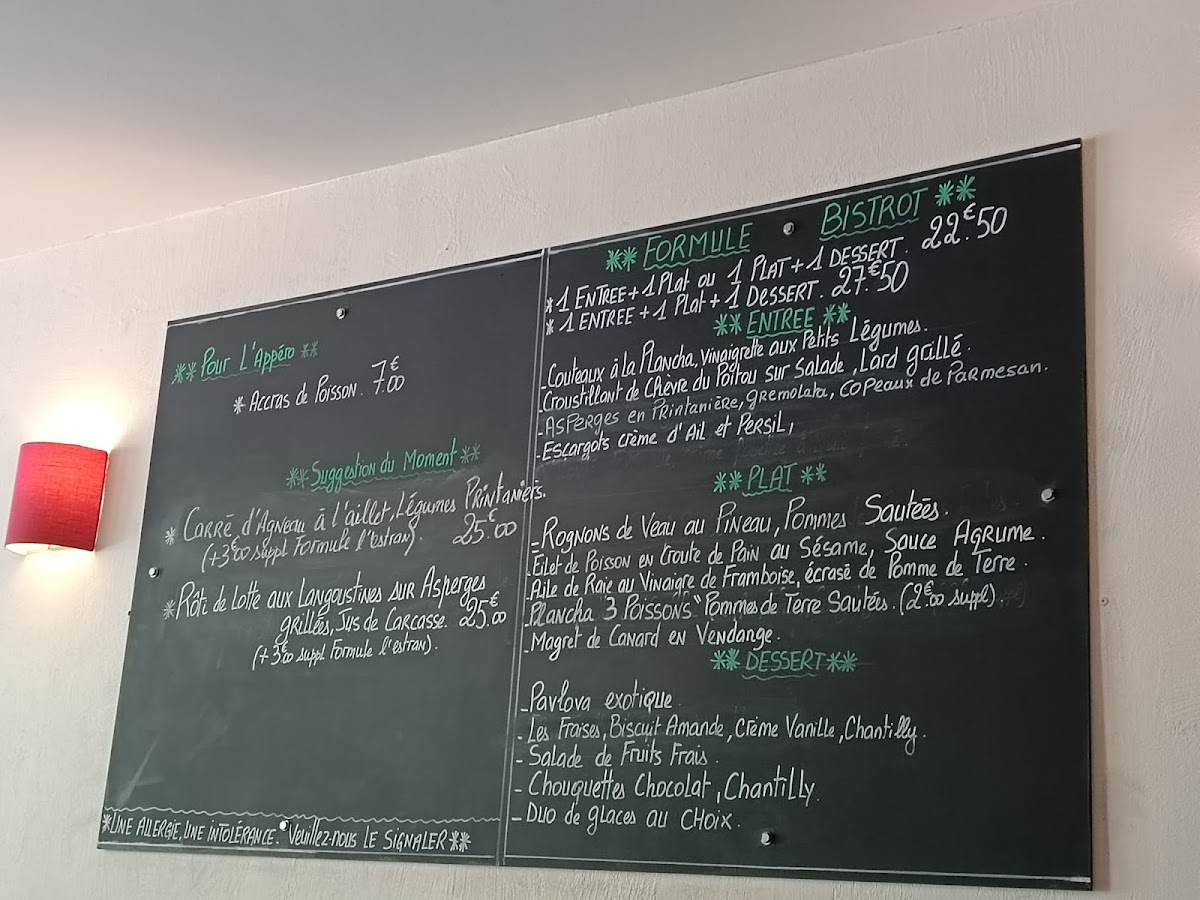 ** Pour L'Appéro **
* Accras de Poisson. 7.€00
** Suggestion du Moment **
* Carré d'Agneau à l'aillet, Légumes Printaniers.
(+3€00 suppl Formule l'estran). 25.€00
* Rôti de Lotte aux Langoustines sur Asperges
grillées, Jus de Carcasse. 25.€00
(+ 3€00 suppl Formule l'estran).
*Une allergie, une intolérance. Veuillez-nous le signaler**
** FORMULE BISTROT **
* 1 Entree + 1 Plat ou 1 Plat + 1 Dessert. 22.€50
* 1 Entree + 1 Plat + 1 Dessert. 27.€50
** ENTREE **
- Couteaux à la Plancha, vinaigrette aux Petits Légumes.
- Croustillant de Chèvre du Poitou sur Salade, Lard grillé.
- Asperges en Printanière, gremolata, copeaux de Parmesan.
- Escargots crème d'Ail et Persil,
** PLAT **
- Rognons de Veau au Pineau, Pommes Sautées.
- Filet de Poisson en Croute de Pain au Sésame, Sauce Agrume.
- Aile de Raie au Vinaigre de Framboise, écrasé de Pomme de Terre.
- Plancha "3 Poissons" Pommes de Terre Sautées. (2€00 suppl).
- Magret de Canard en Vendange.
** DESSERT **
- Pavlova exotique
- Les Fraises, Biscuit Amande, Crème Vanille, Chantilly.
- Salade de Fruits Frais.
- Chouquettes Chocolat, Chantilly.
- Duo de glaces au choix.